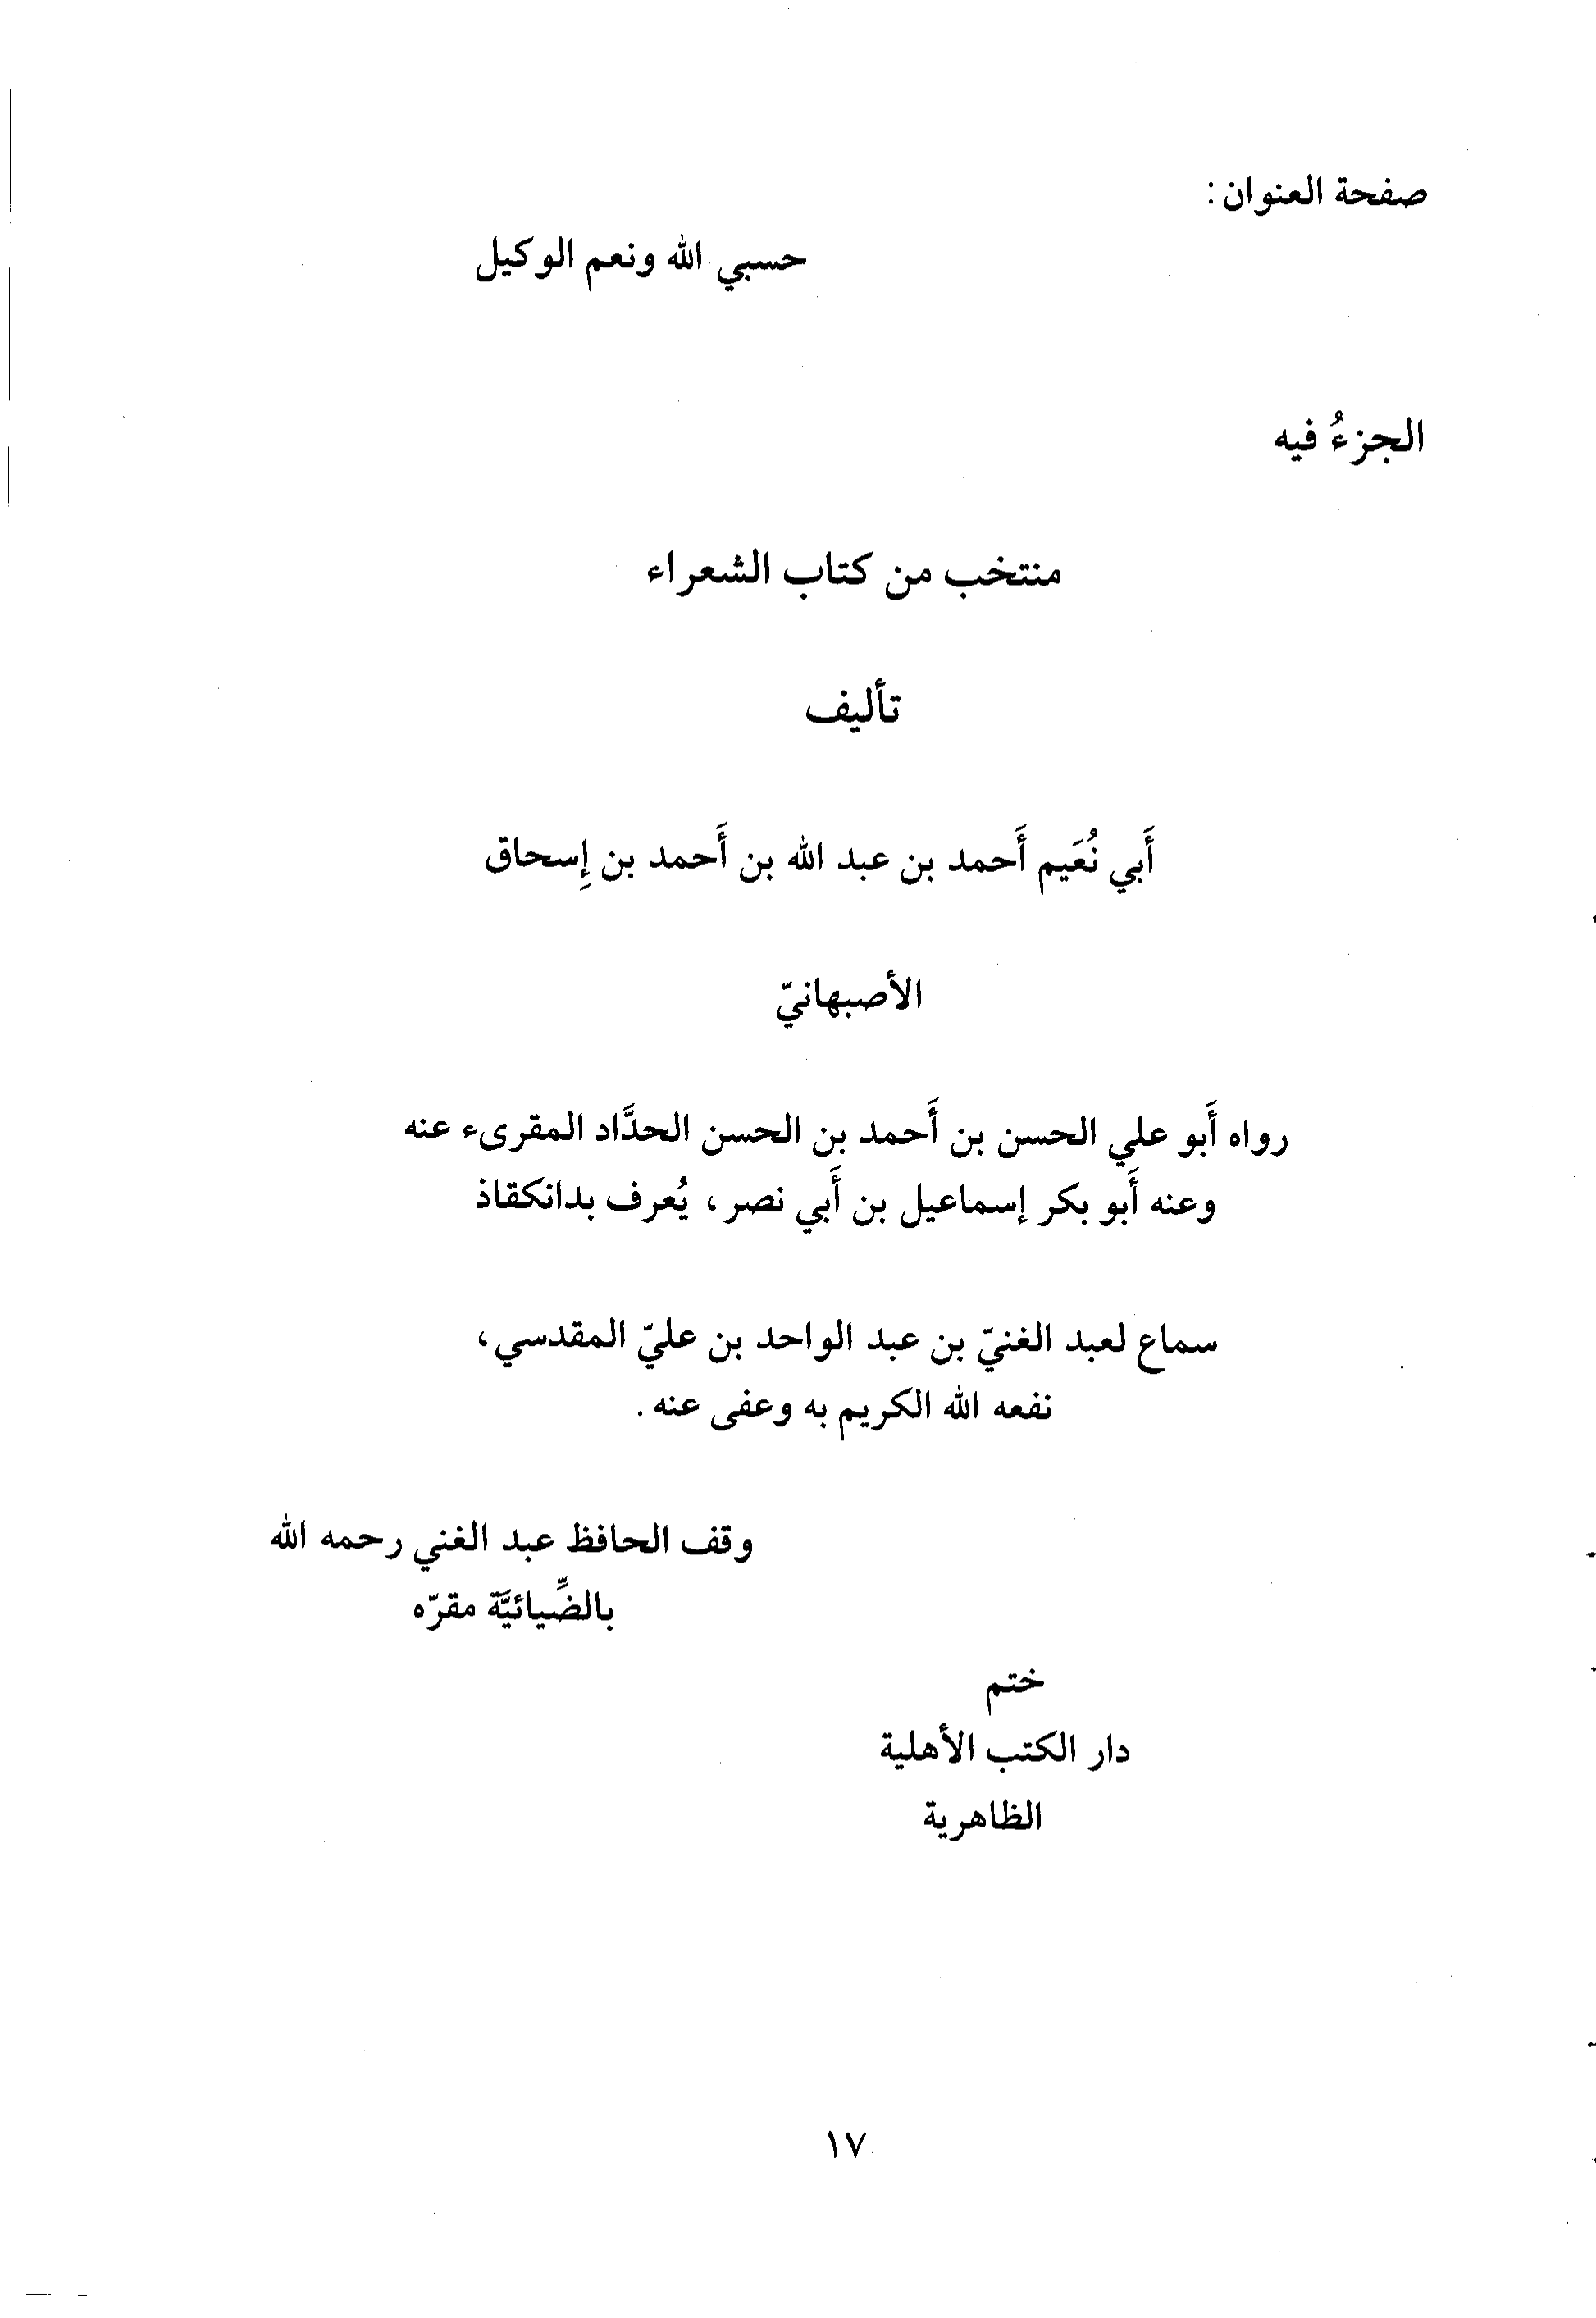 صفحة العنوان :
حسبي الله ونعم الوكيل
الجزءُ فيه
منتخب من كتاب الشعراء
تأليف
أَبي نُعَيم أَحمد بن عبد الله بن أَحمد بن إِسحاق
الأصبهانيّ
رواه أَبو علي الحسن بن أَحمد بن الحسن الحدَّاد المقرىء عنه
وعنه أَبو بكر إسماعيل بن أَبي نصر ، يُعرف بدانكقاذ
سماع لعبد الغنيّ بن عبد الواحد بن عليّ المقدسي ،
نفعه الله الكريم به وعفى عنه .
وقف الحافظ عبد الغني رحمه الله
بالضِّيائيَّة مقرّه
ختم
دار الكتب الأهلية
الظاهرية
١٧